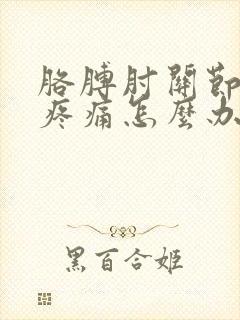 胳膊肘關節
疼痛怎麼办
黑百合姬